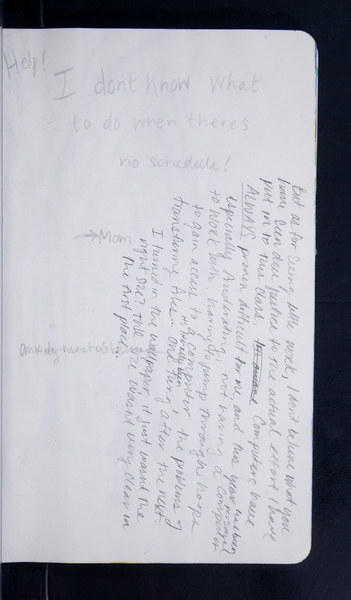 Help!
I don't know what
to do when theres
no schedule!
→ Mom
anxiety
But as for seeing little work, I dont believe what you
have seen does justice to the actual effort I have
put in to this class. Computers have
ALWAYS proven difficult for me, and this year
especially frustrating, not having a computer
to work with. having to jump through hoops
to gain access to a computer, the problems of
transfering files... one thing after the next.
I turned in the wallpaper, it just wasnt the
right size? The size wasnt very clear in
the first place.